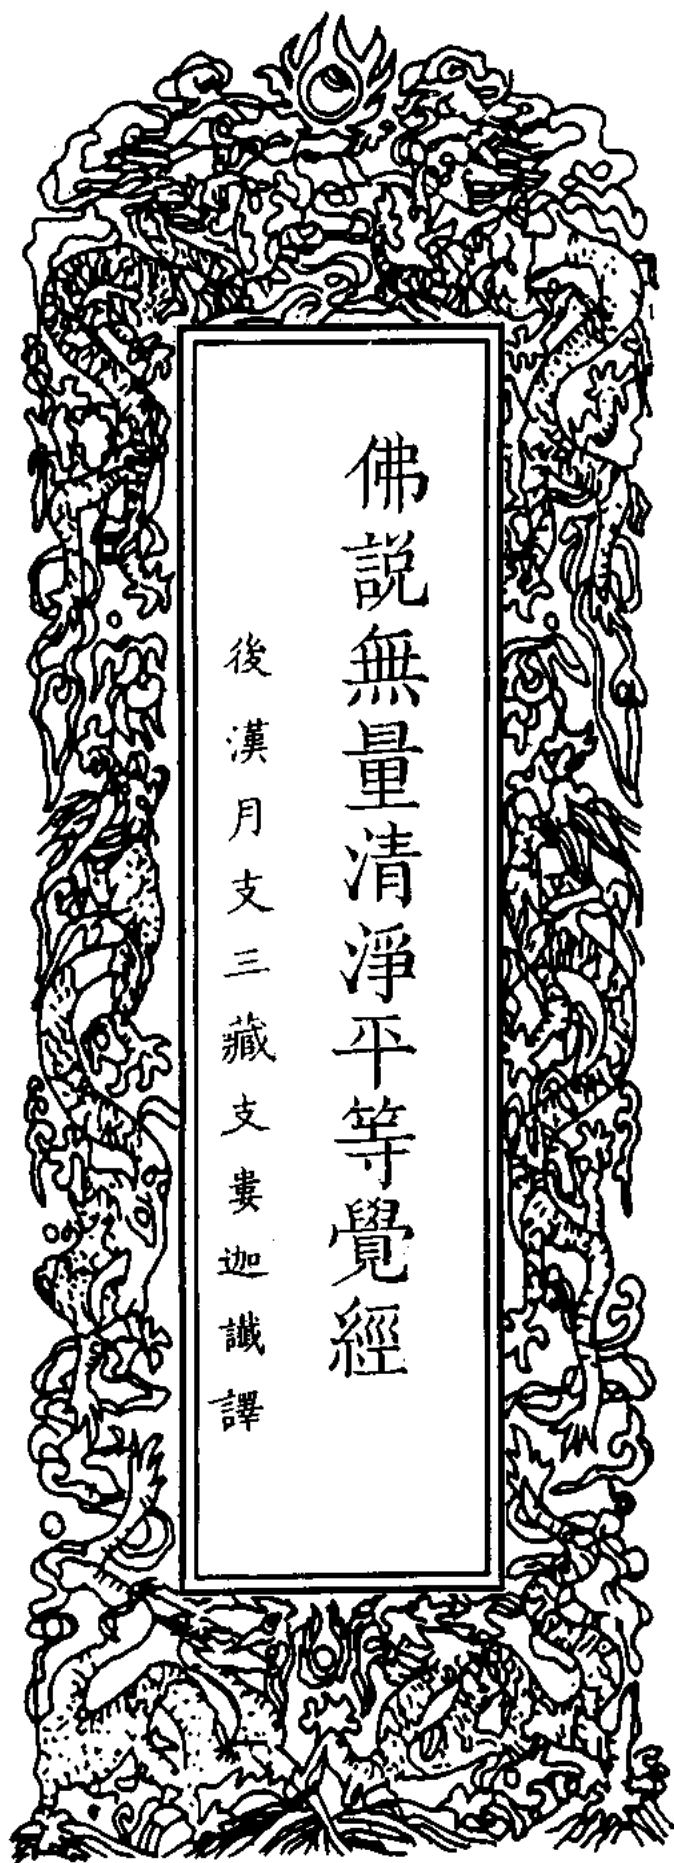 佛說無量清淨平等覺經
後漢月支三藏支婁迦讖譯